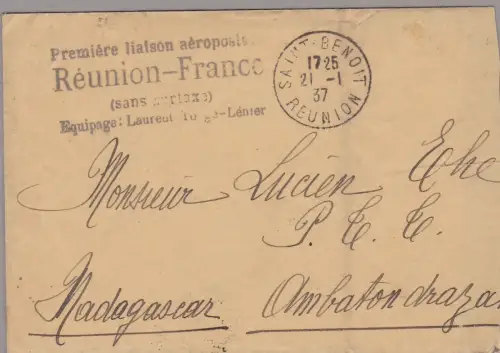 Première liaison aéropostale
Réunion-France
(sans surtaxe)
Equipage: Laurent Touge-Lénier
SAINT-BENOIT
17 25
21 -1
37
REUNION
Monsieur Lucien
P. T. T.
Madagascar Ambatondraza